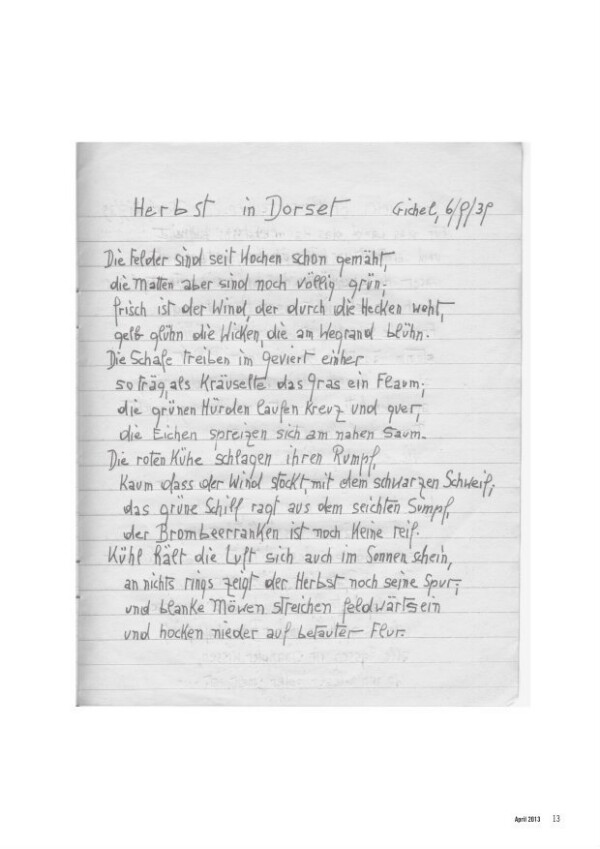 Herbst in Dorset Gichel, 6/9/39
Die Felder sind seit Wochen schon gemäht,
die Matten aber sind noch völlig grün;
frisch ist der Wind, der durch die Hecken weht,
gelb glühn die Wicken, die am Wegrand blühn.
Die Schafe treiben im Geviert einher
so träg, als kräuselte das Gras ein Flaum;
die grünen Hürden laufen kreuz und quer,
die Eichen spreizen sich am nahen Saum.
Die roten Kühe schlagen ihren Rumpf,
kaum dass der Wind stockt, mit dem schwarzen Schweif;
das grüne Schilf ragt aus dem seichten Sumpf,
der Brombeerranken ist noch keine reif.
Kühl hält die Luft sich auch im Sonnenschein,
an nichts rings zeigt der Herbst noch seine Spur;
und blanke Möwen streichen feldwärts ein
und hocken nieder auf betauter Flur.
April 2013 13